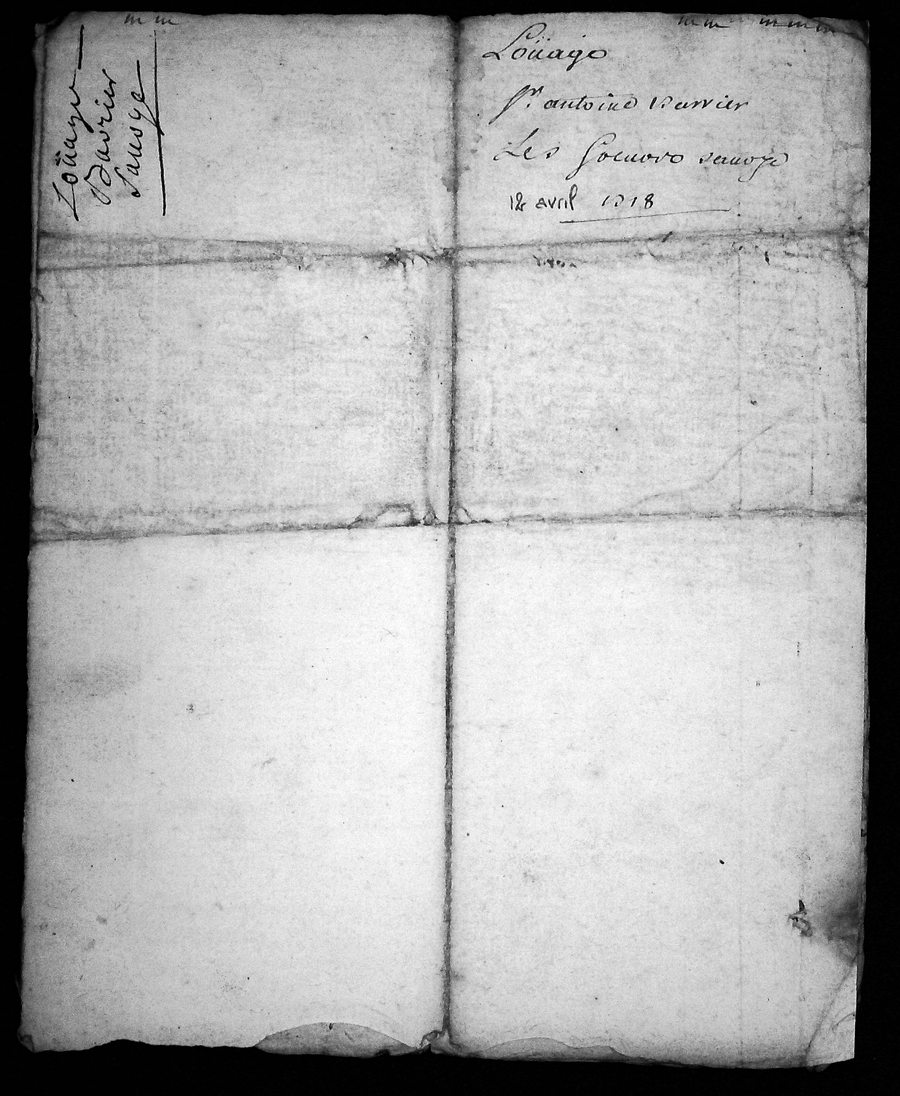 Loüage
Barrier
Sauvge
Loüage
Sr. antoine Barrier
Les Soeurs sauvge
12 avril 1818